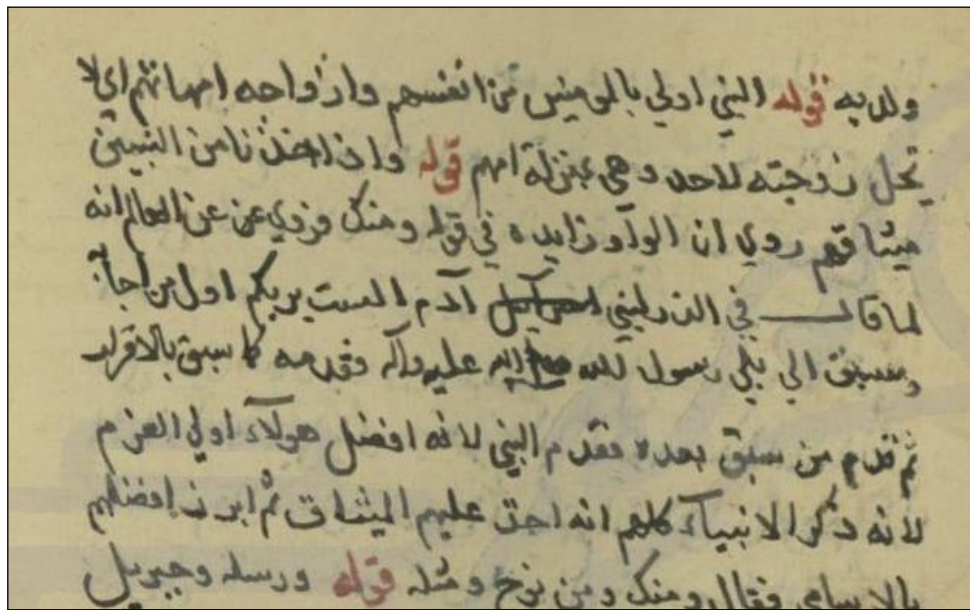 ولديه قوله النبي اولي بالمومنين من انفسهم وازواجه امهاتهم اي لا
تحل زوجته لاحد وهي بمنزلة امهم قوله واذ اخذنا من النبيين
ميثاقهم روي ان الواو زايده في قوله ومنك وروي عن عن العالم انه
لما قال في الذر لبني آدم الست بربكم اول من اجاب
وسبق الي بلي رسول الله صلي الله عليه واله فقدمه كما سبق بالاقرار
ثم قدم من سبق بعده فقدم النبي لانه افضل هولاء اولي العزم
لانه ذكر الانبياء كلهم انه اخذ عليهم الميثاق ثم ابرز افضلهم
بالاسامي فقال ومنك ومن نوح ومثله قوله ورسله وجبريل